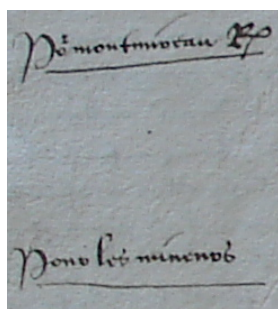 Po^r montmoreau
Pour les mineurs